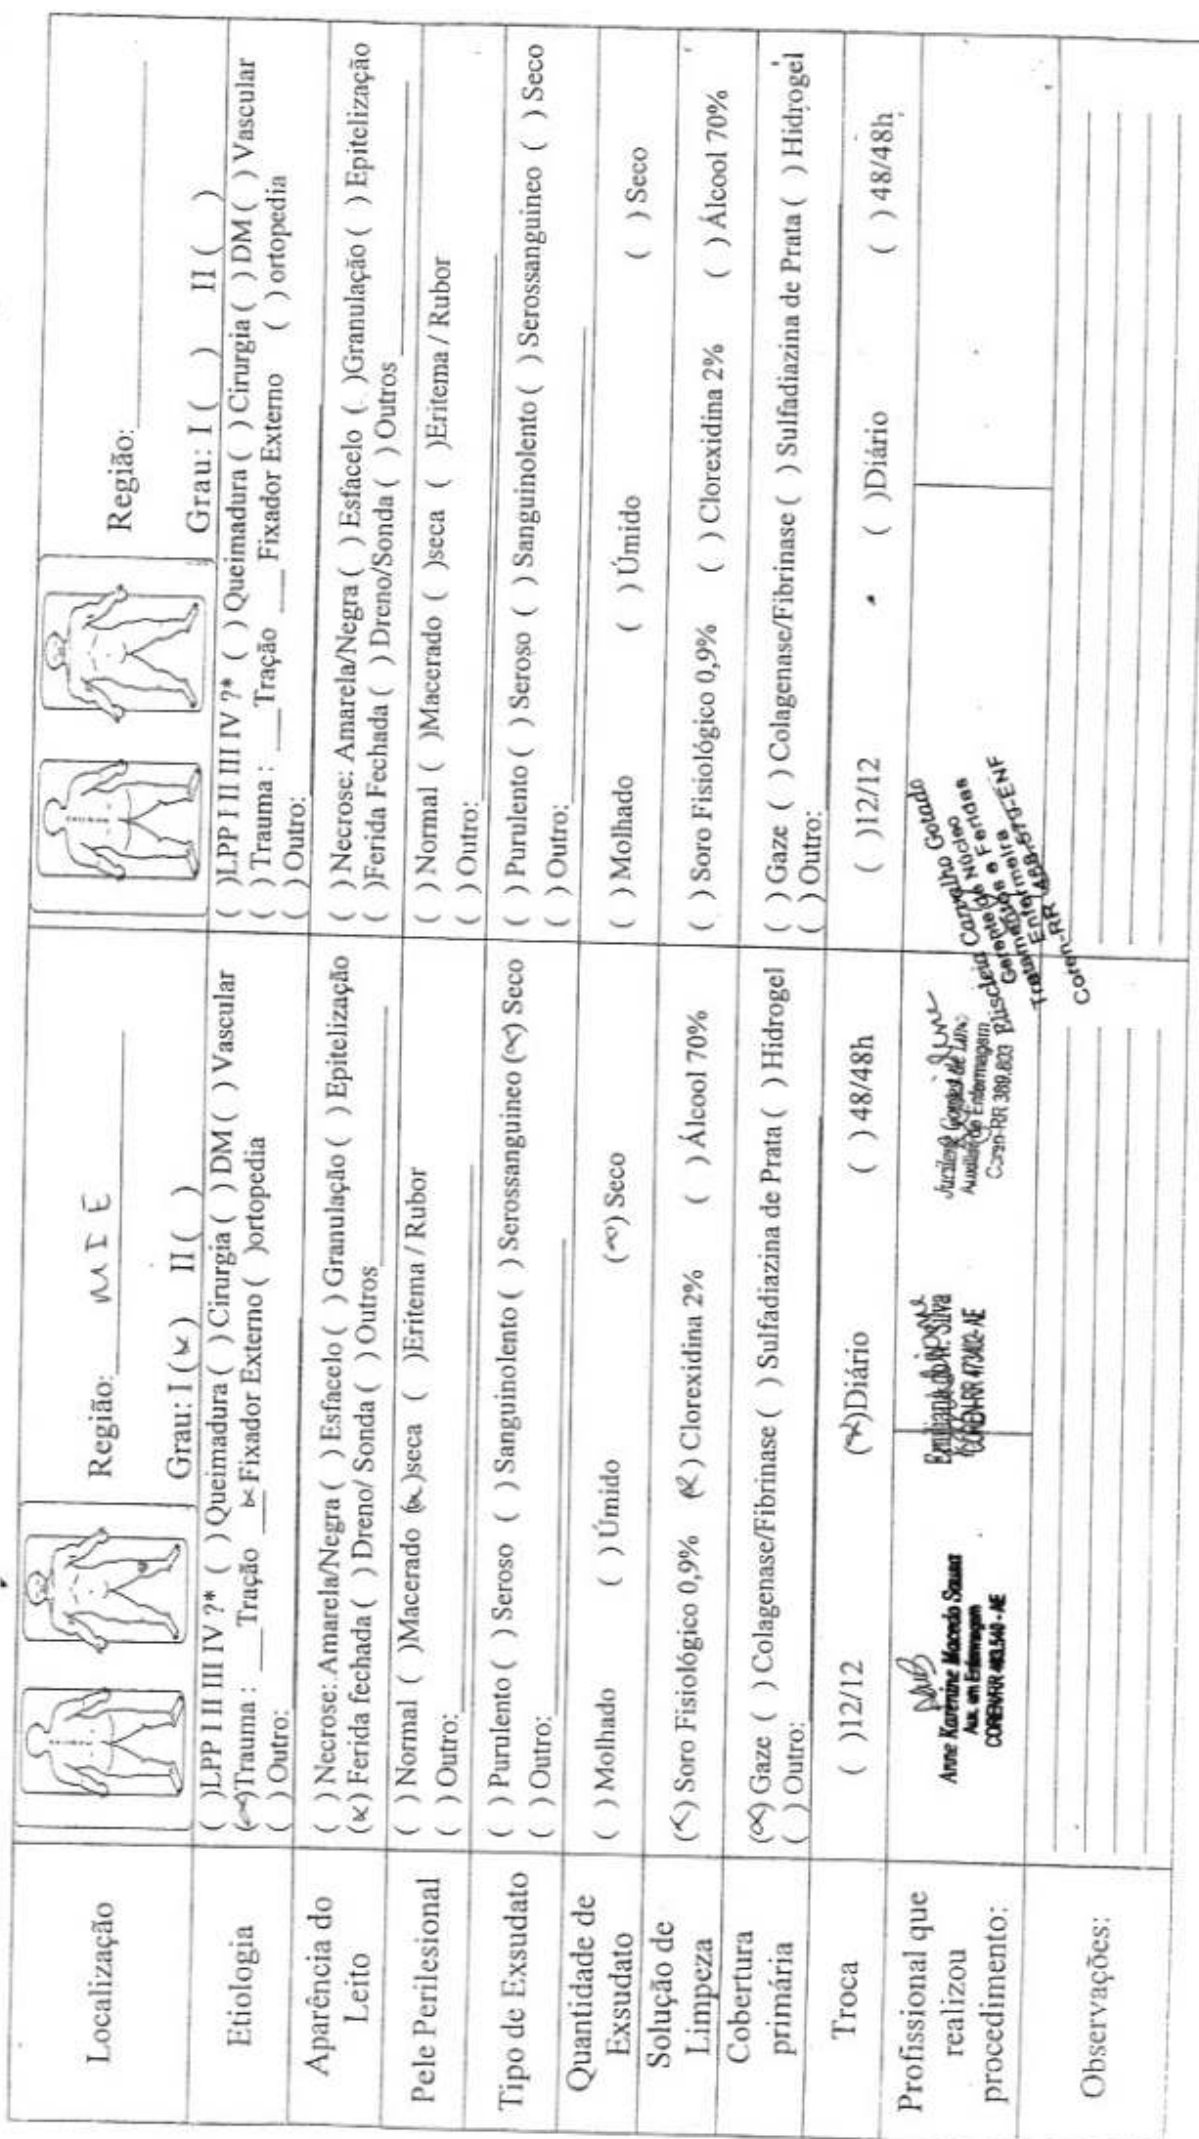 Localização
Região: MIE
Grau: I (x) II ( )
Região:
Grau: I ( ) II ( )
Etiologia
( )LPP I II III IV ?* ( ) Queimadura ( ) Cirurgia ( ) DM ( ) Vascular
(x)Trauma : ___Tração ___x Fixador Externo ( )ortopedia
( ) Outro:
( )LPP I II III IV ?* ( ) Queimadura ( ) Cirurgia ( ) DM ( ) Vascular
( ) Trauma : ___Tração ___ Fixador Externo ( ) ortopedia
( ) Outro:
Aparência do
Leito
( ) Necrose: Amarela/Negra ( ) Esfacelo ( ) Granulação ( ) Epitelização
(x) Ferida fechada ( ) Dreno/ Sonda ( ) Outros
( ) Necrose: Amarela/Negra ( ) Esfacelo ( )Granulação ( ) Epitelização
( )Ferida Fechada ( ) Dreno/Sonda ( ) Outros
Pele Perilesional
( ) Normal ( )Macerado (x)seca ( )Eritema / Rubor
( ) Outro:
( ) Normal ( )Macerado ( )seca ( )Eritema / Rubor
( ) Outro:
Tipo de Exsudato
( ) Purulento ( ) Seroso ( ) Sanguinolento ( ) Serossanguineo (x) Seco
( ) Outro:
( ) Purulento ( ) Seroso ( ) Sanguinolento ( ) Serossanguineo ( ) Seco
( ) Outro:
Quantidade de
Exsudato
( ) Molhado ( ) Úmido (x) Seco
( ) Molhado ( ) Úmido ( ) Seco
Solução de
Limpeza
(x) Soro Fisiológico 0,9% (x) Clorexidina 2% ( ) Álcool 70%
( ) Soro Fisiológico 0,9% ( ) Clorexidina 2% ( ) Álcool 70%
Cobertura
primária
(x) Gaze ( ) Colagenase/Fibrinase ( ) Sulfadiazina de Prata ( ) Hidrogel
( ) Outro:
( ) Gaze ( ) Colagenase/Fibrinase ( ) Sulfadiazina de Prata ( ) Hidrogel
( ) Outro:
Troca
( )12/12 (x)Diário ( ) 48/48h
( )12/12 ( )Diário ( ) 48/48h
Profissional que
realizou
procedimento:
Anne Karenine Macedo Sousa
Aux. em Enfermagem
COREN/RR 483.540 - AE
Silva
COREN-RR 473402-AE
Gomes de Lima
Auxiliar de Enfermagem
Coren-RR 389.803
Carvalho Gotado
Gerente do Núcleo
Tratamento de Feridas
Enfermeira
Coren-RR 468-579-ENF
Observações: